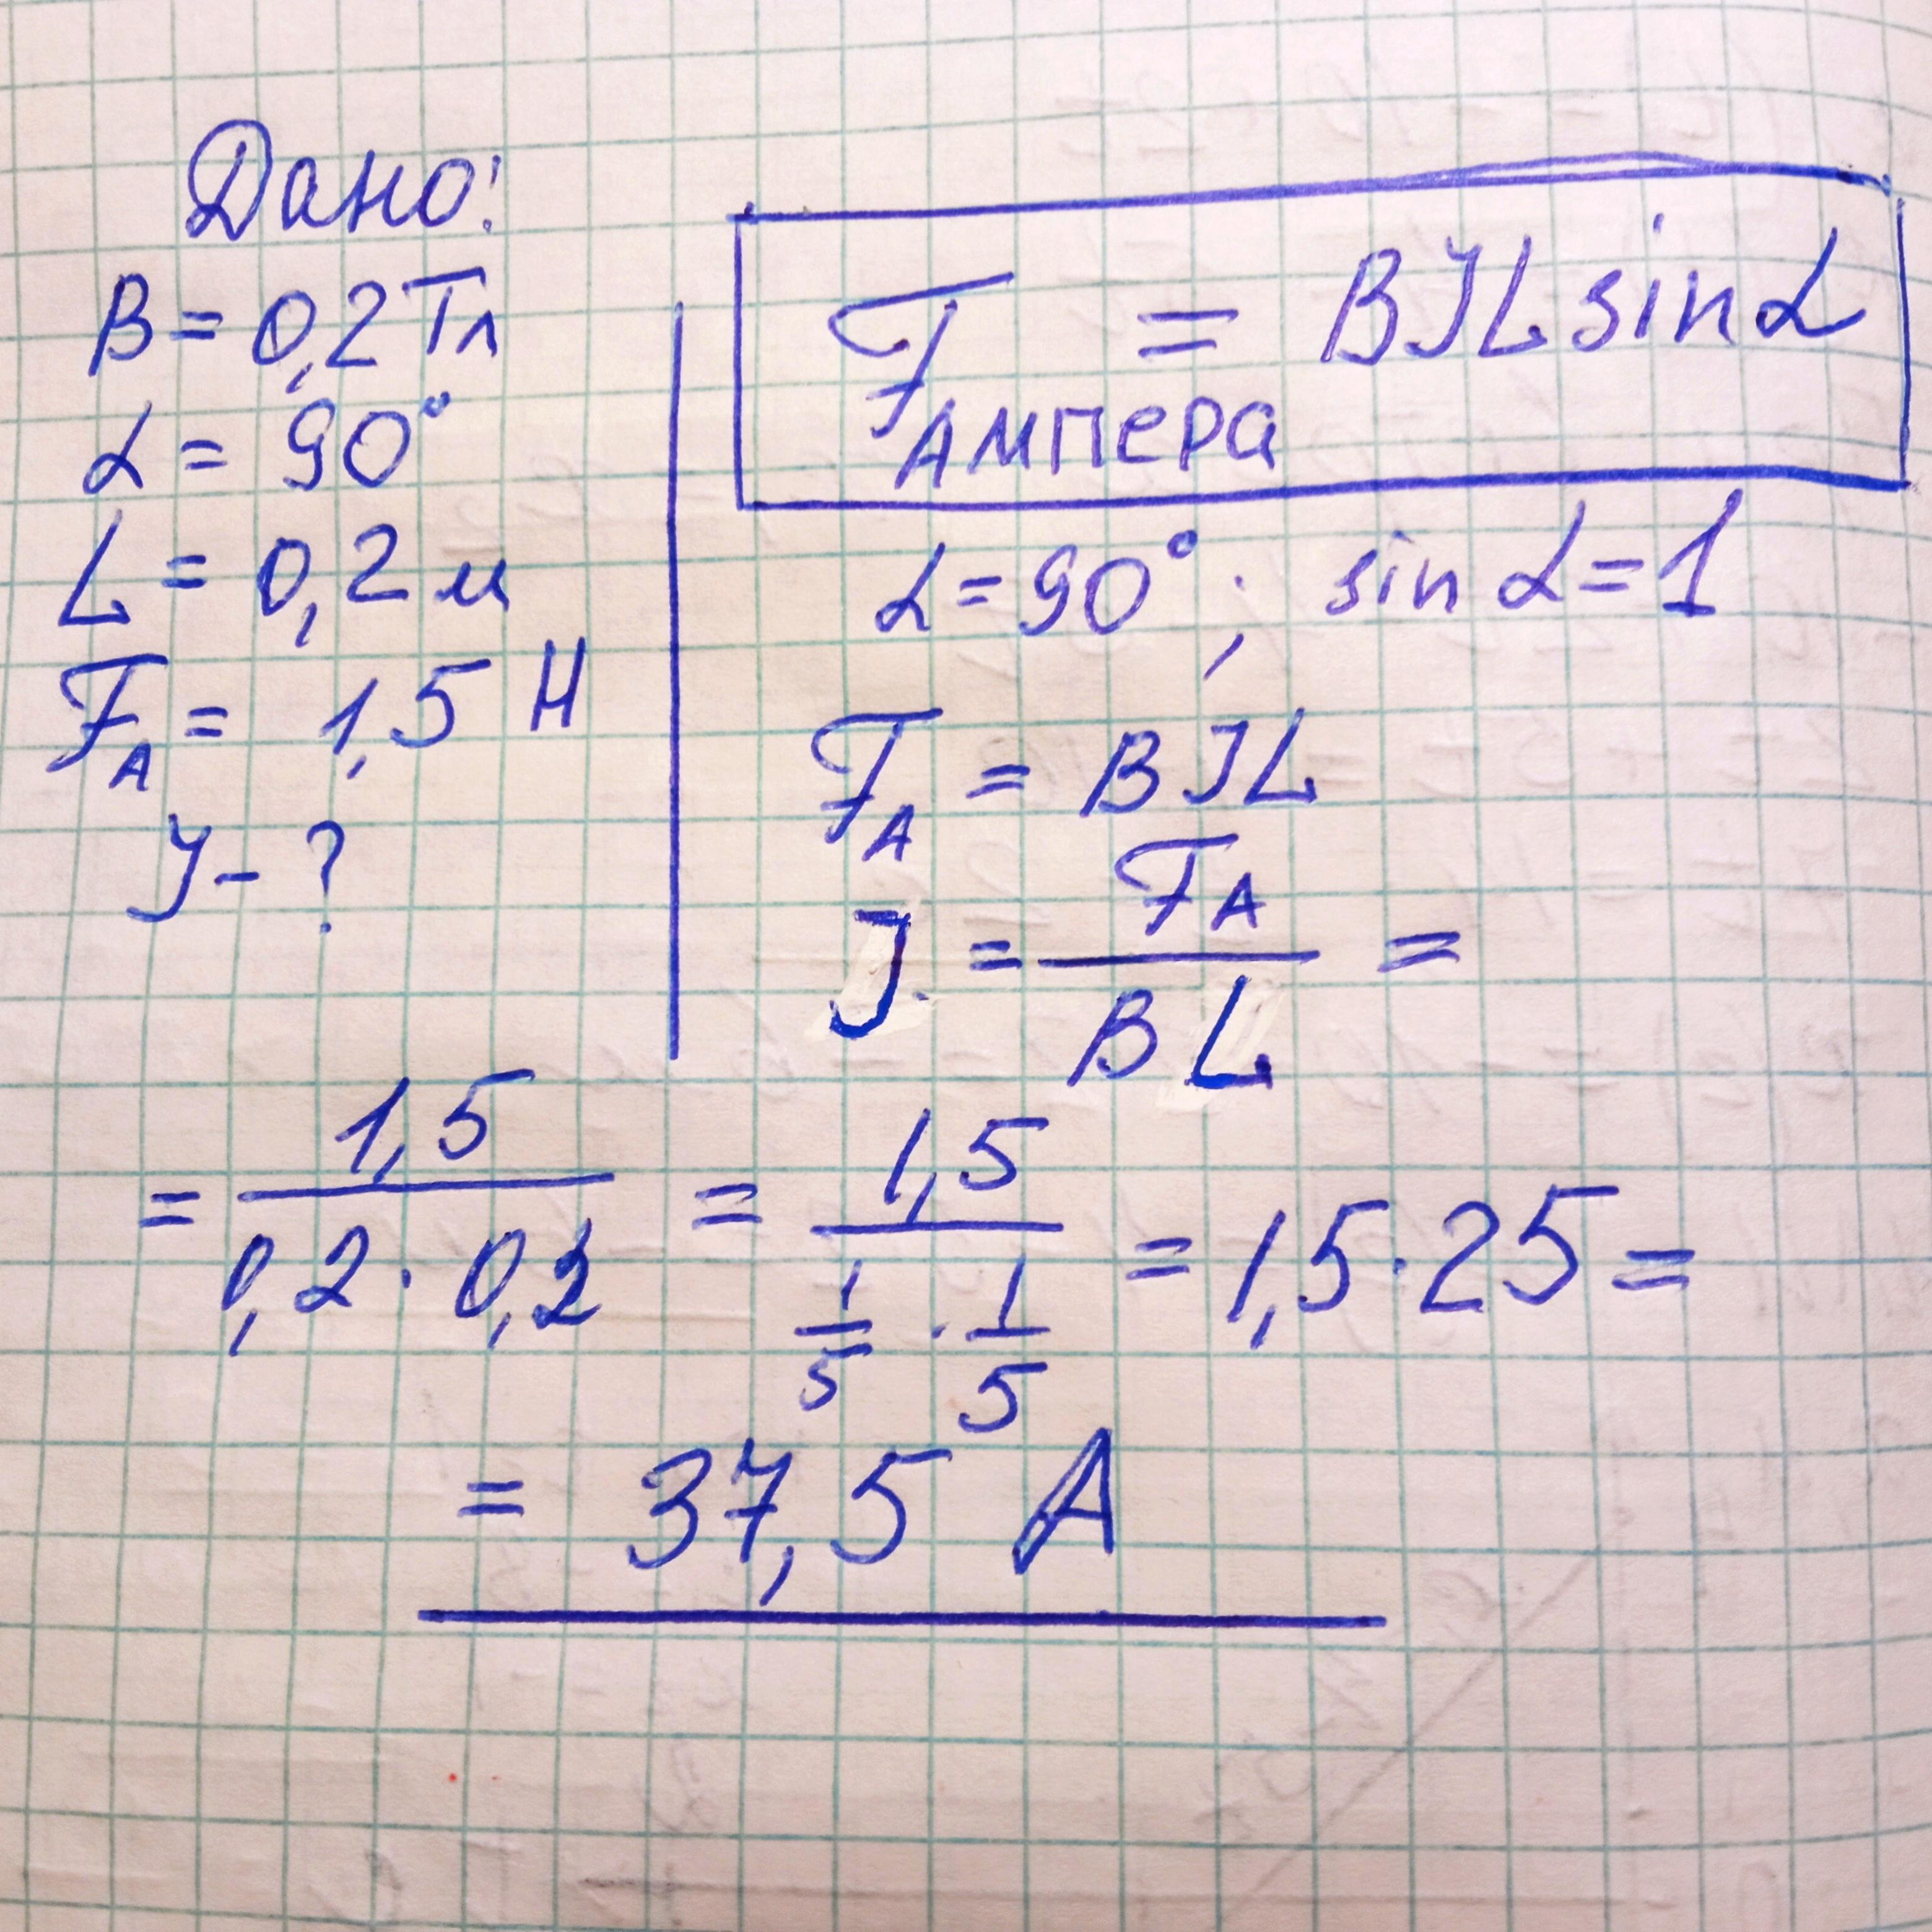 Дано:
B = 0,2 Тл
α = 90°
L = 0,2 м
F_A = 1,5 Н
J - ?
F_Ампера = BJL sin α
α = 90° ; sin α = 1
F_A = BJL
J = F_A / BL =
= 1,5 / 0,2 · 0,2 = 1,5 / 1/5 · 1/5 = 1,5 · 25 =
= 37,5 А